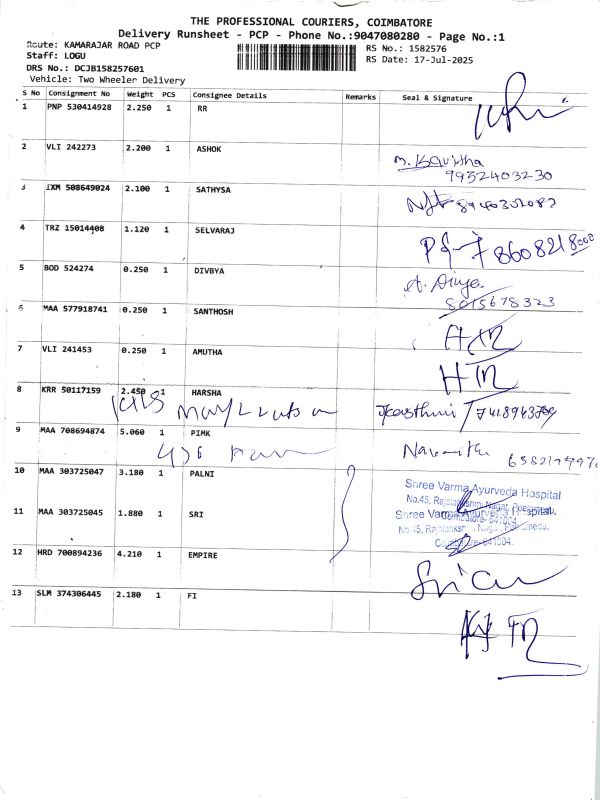 THE PROFESSIONAL COURIERS, COIMBATORE
Delivery Runsheet - PCP - Phone No.:9047080280 - Page No.:1
Route: KAMARAJAR ROAD PCP
RS No.: 1582576
Staff: LOGU
RS Date: 17-Jul-2025
DRS No.: DCJB158257601
Vehicle: Two Wheeler Delivery
S No Consignment No Weight PCS Consignee Details Remarks Seal & Signature
1 PNP 530414928 2.250 1 RR
2 VLI 242273 2.200 1 ASHOK
M. Kavitha
9952403230
3 IXM 508649024 2.100 1 SATHYSA
4 TRZ 15014408 1.120 1 SELVARAJ
5 BOD 524274 0.250 1 DIVBYA
A. Divya
8015678323
6 MAA 577918741 0.250 1 SANTHOSH
7 VLI 241453 0.250 1 AMUTHA
8 KRR 50117159 2.450 1 HARSHA
9 MAA 708694874 5.060 1 PIMK
10 MAA 303725047 3.180 1 PALNI
Shree Varma Ayurveda Hospital
11 MAA 303725045 1.880 1 SRI
Shree Varma Ayurveda Hospital
12 HRD 700894236 4.210 1 EMPIRE
13 SLM 374306445 2.180 1 FI